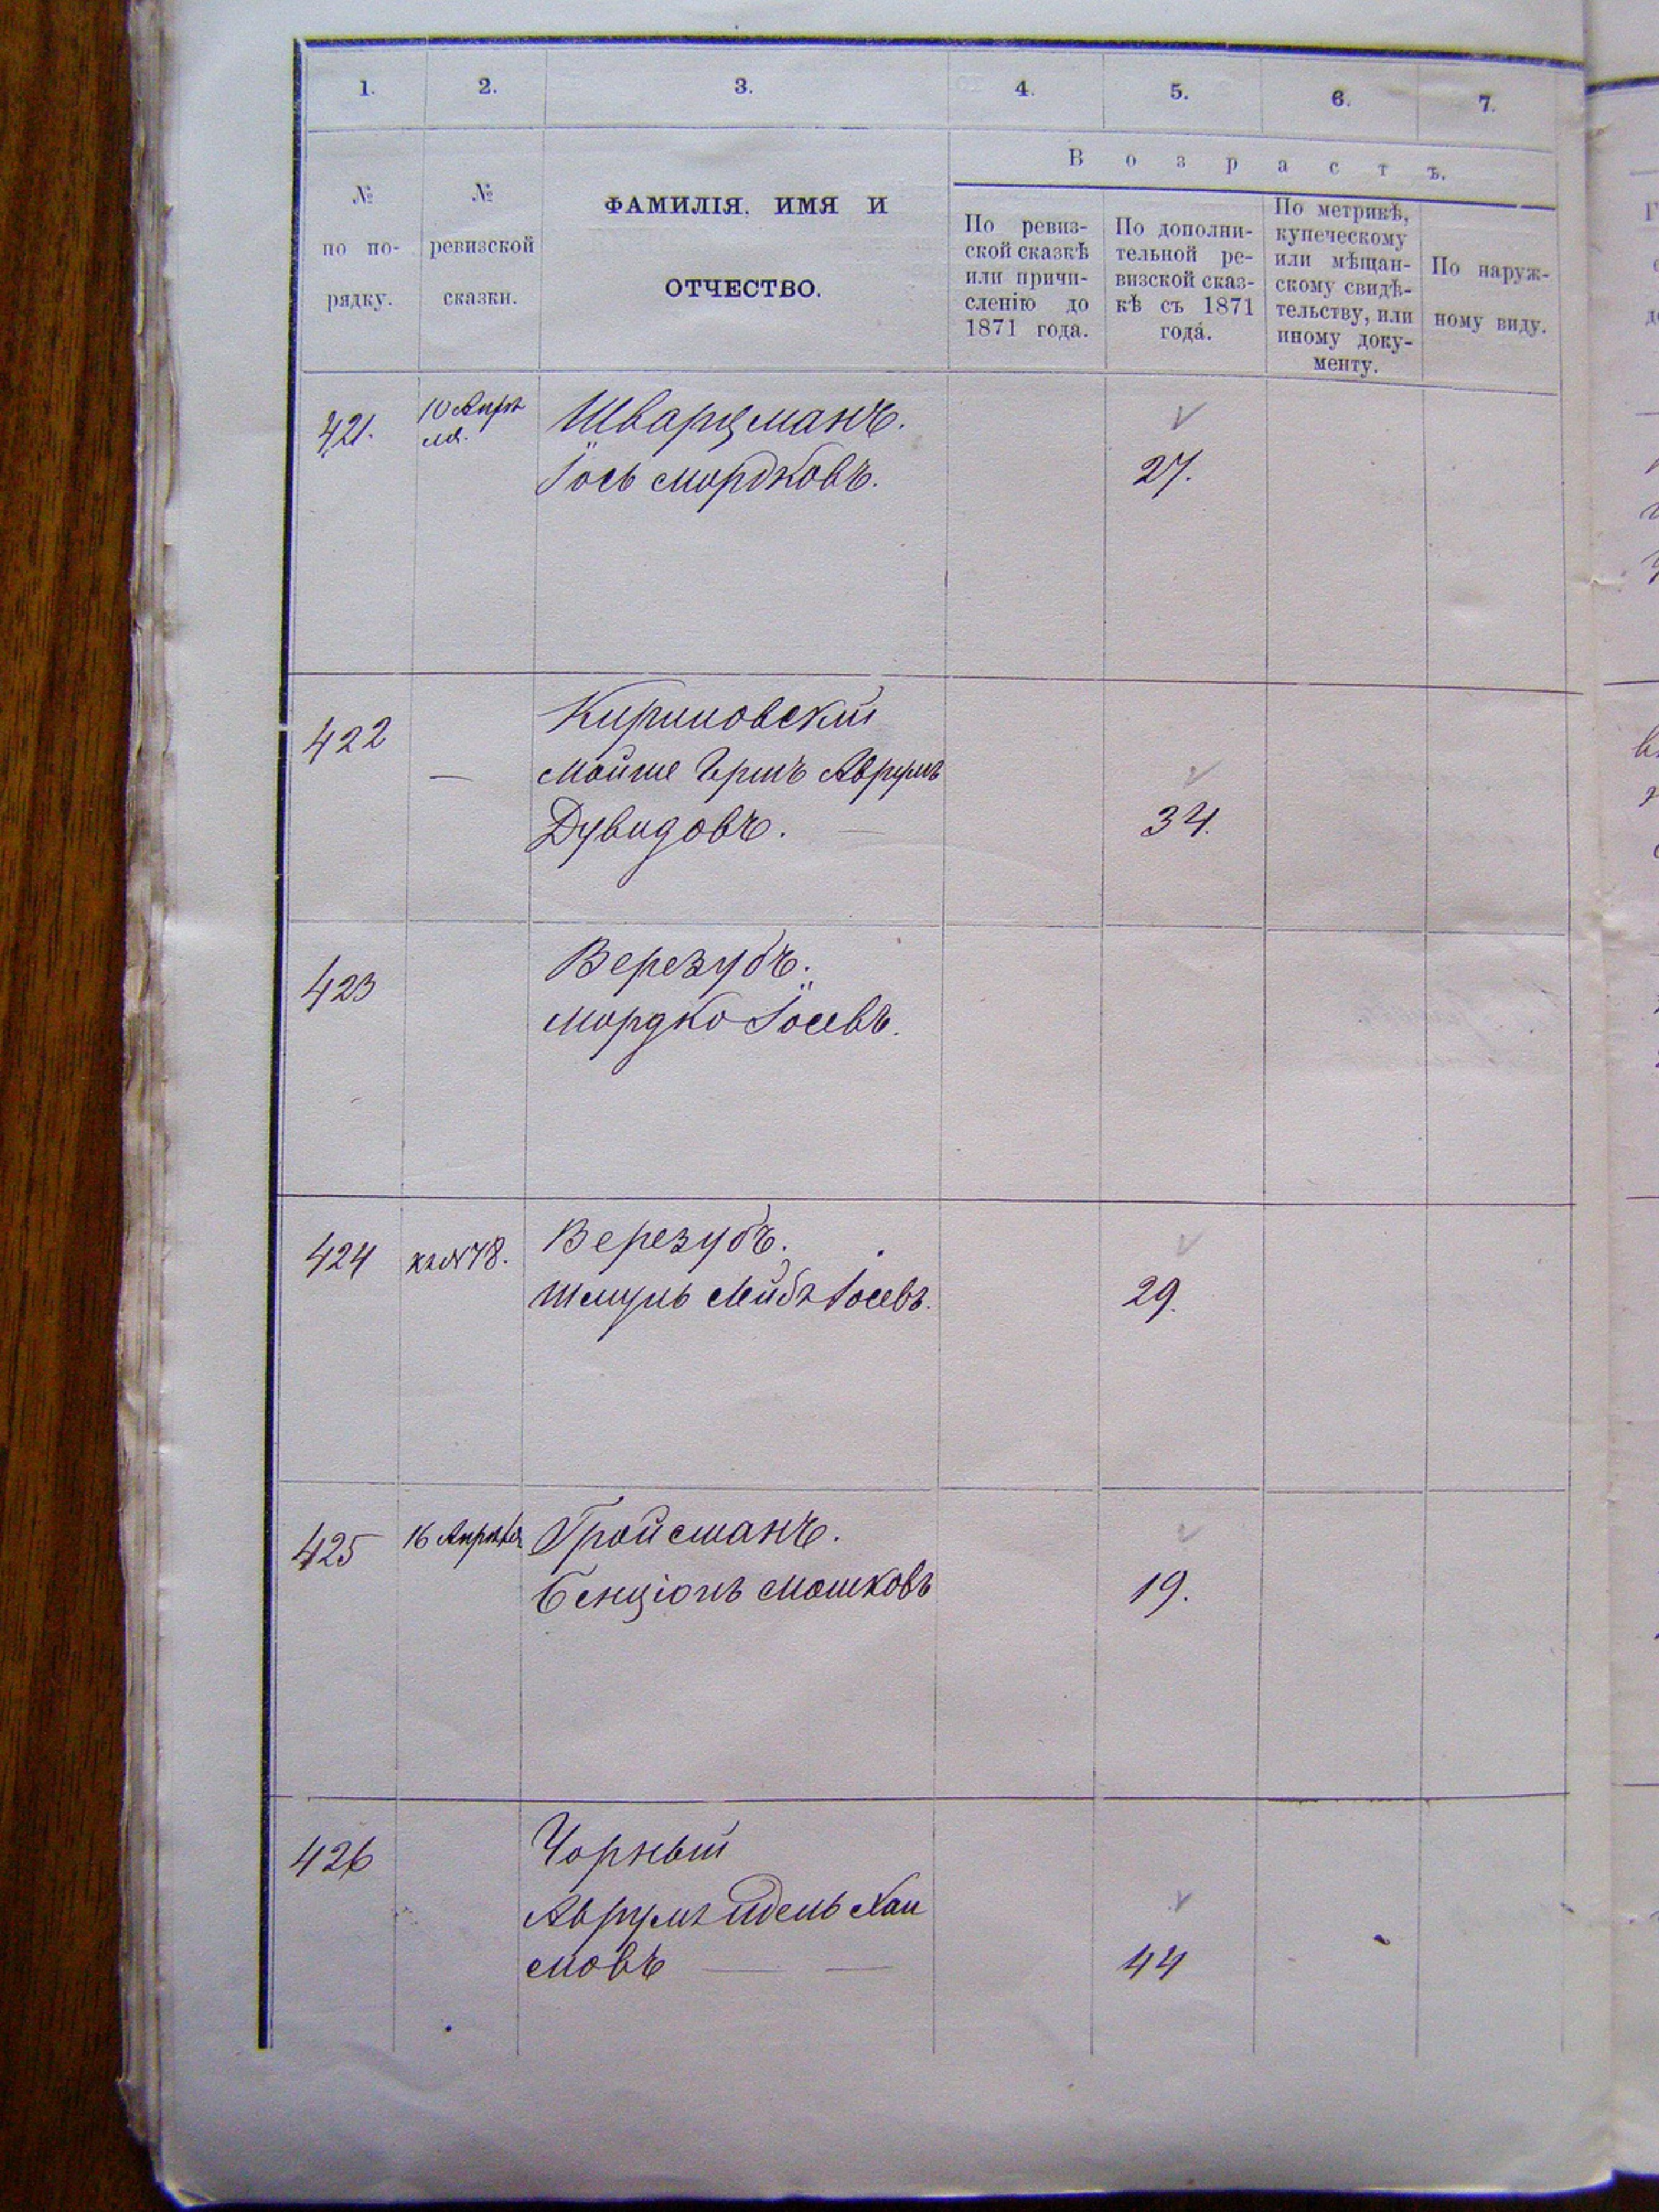 1. 2. 3. 4. 5. 6. 7.
В о з р а с т ъ.
№
по по-
рядку.
№
ревизской
сказки.
ФАМИЛІЯ, ИМЯ И
ОТЧЕСТВО.
По ревиз-
ской сказкѣ
или причи-
сленію до
1871 года.
По дополни-
тельной ре-
визской сказ-
кѣ съ 1871
года.
По метрикѣ,
купеческому
или мѣщан-
скому свидѣ-
тельству, или
иному доку-
менту.
По наруж-
ному виду.
421. 10 Апрѣ Шварцманъ.
ля. Іось Мордковъ. 27.
422 Кириновскій
— Мойше Гершъ Аврумъ
Дувидовъ. — 34.
423 Верезубъ.
Мордко Іосевъ.
424 Верезубъ.
Шмуль Лейбъ Іосевъ. 29.
425 16 Апрѣля Гройсманъ.
Бенціонъ Мошковъ 19.
426 Чорный
Аврумъ Идель Хаи
мовъ — — 44